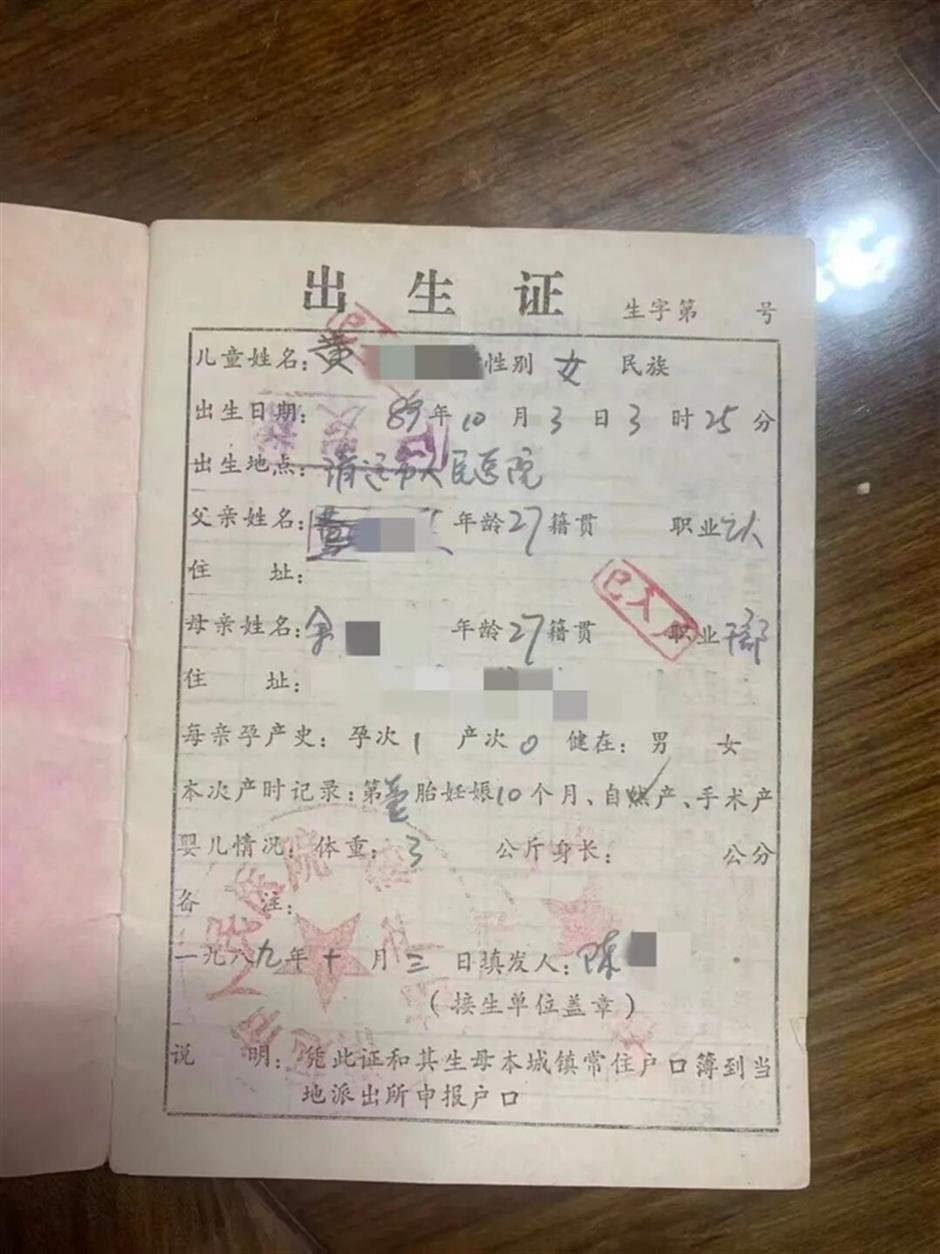 出生证 生字第 号
儿童姓名：黄 性别 女 民族
出生日期： 89年10月3日3时25分
出生地点：清远市人民医院
父亲姓名： 年龄27籍贯 职业
住 址：
已入户
母亲姓名：余 年龄27籍贯 职业干部
住 址：
每亲孕产史：孕次1 产次0 健在：男 女
本次产时记录：第壹胎妊娠10个月、自然产、手术产
婴儿情况：体重：3 公斤身长： 公分
备 注：
一九八九年十月三日填发人：陈
（接生单位盖章）
说 明：凭此证和其生母本城镇常住户口簿到当
地派出所申报户口